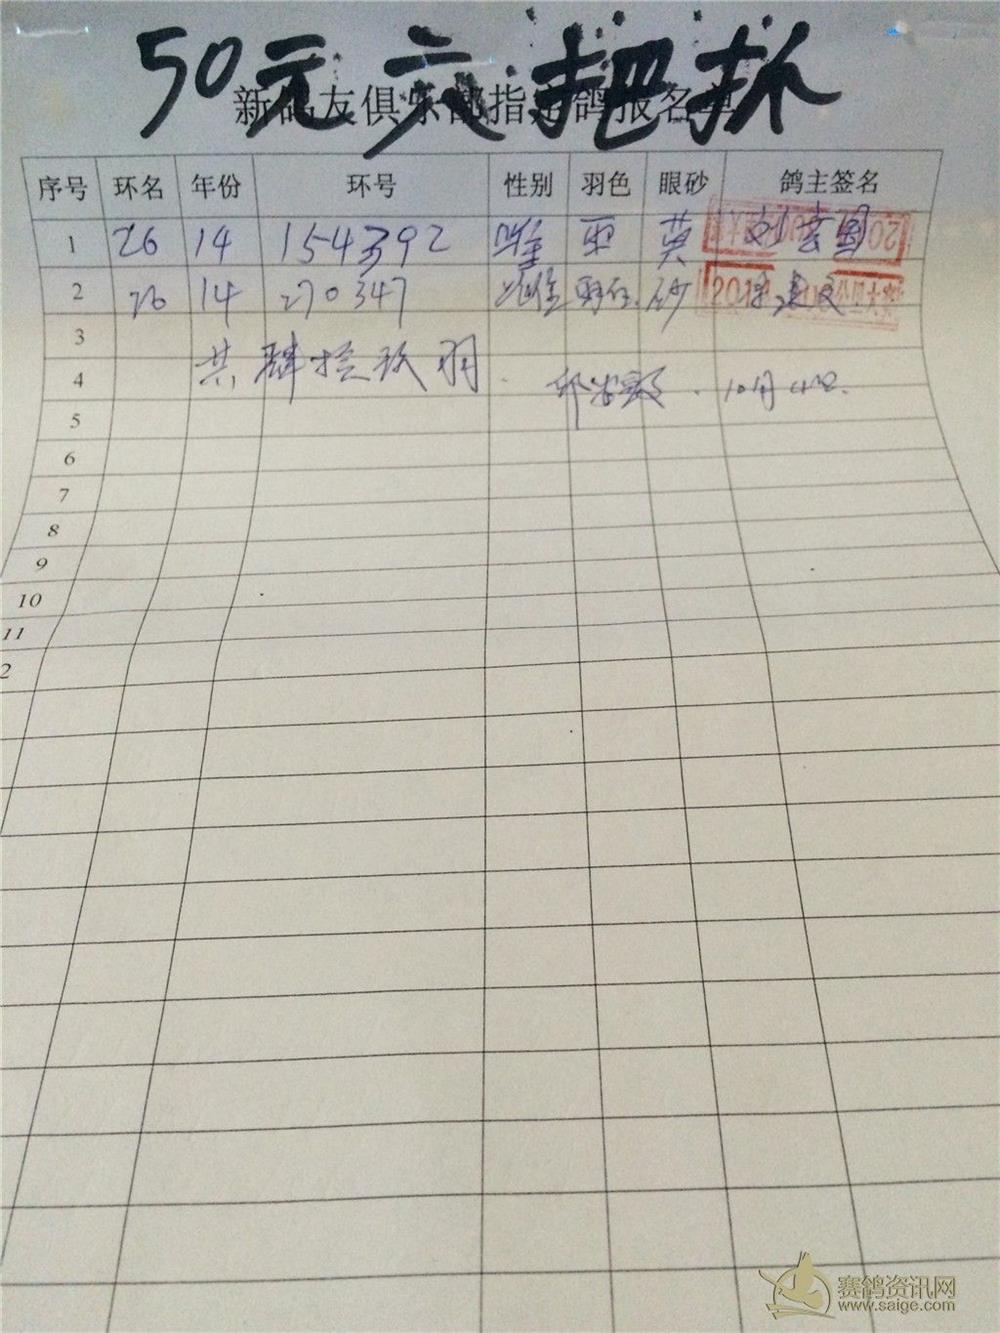 50元六把抓
新鸽友俱乐部指定鸽报名单
序号 环名 年份 环号 性别 羽色 眼砂 鸽主签名
1 26 14 154392 雄 黄
2 26 14 270347 雌 砂
3
共肆拾玖羽
4 10月4日
5
6
7
8
9
10
11
2
赛鸽资讯网
www.saige.com